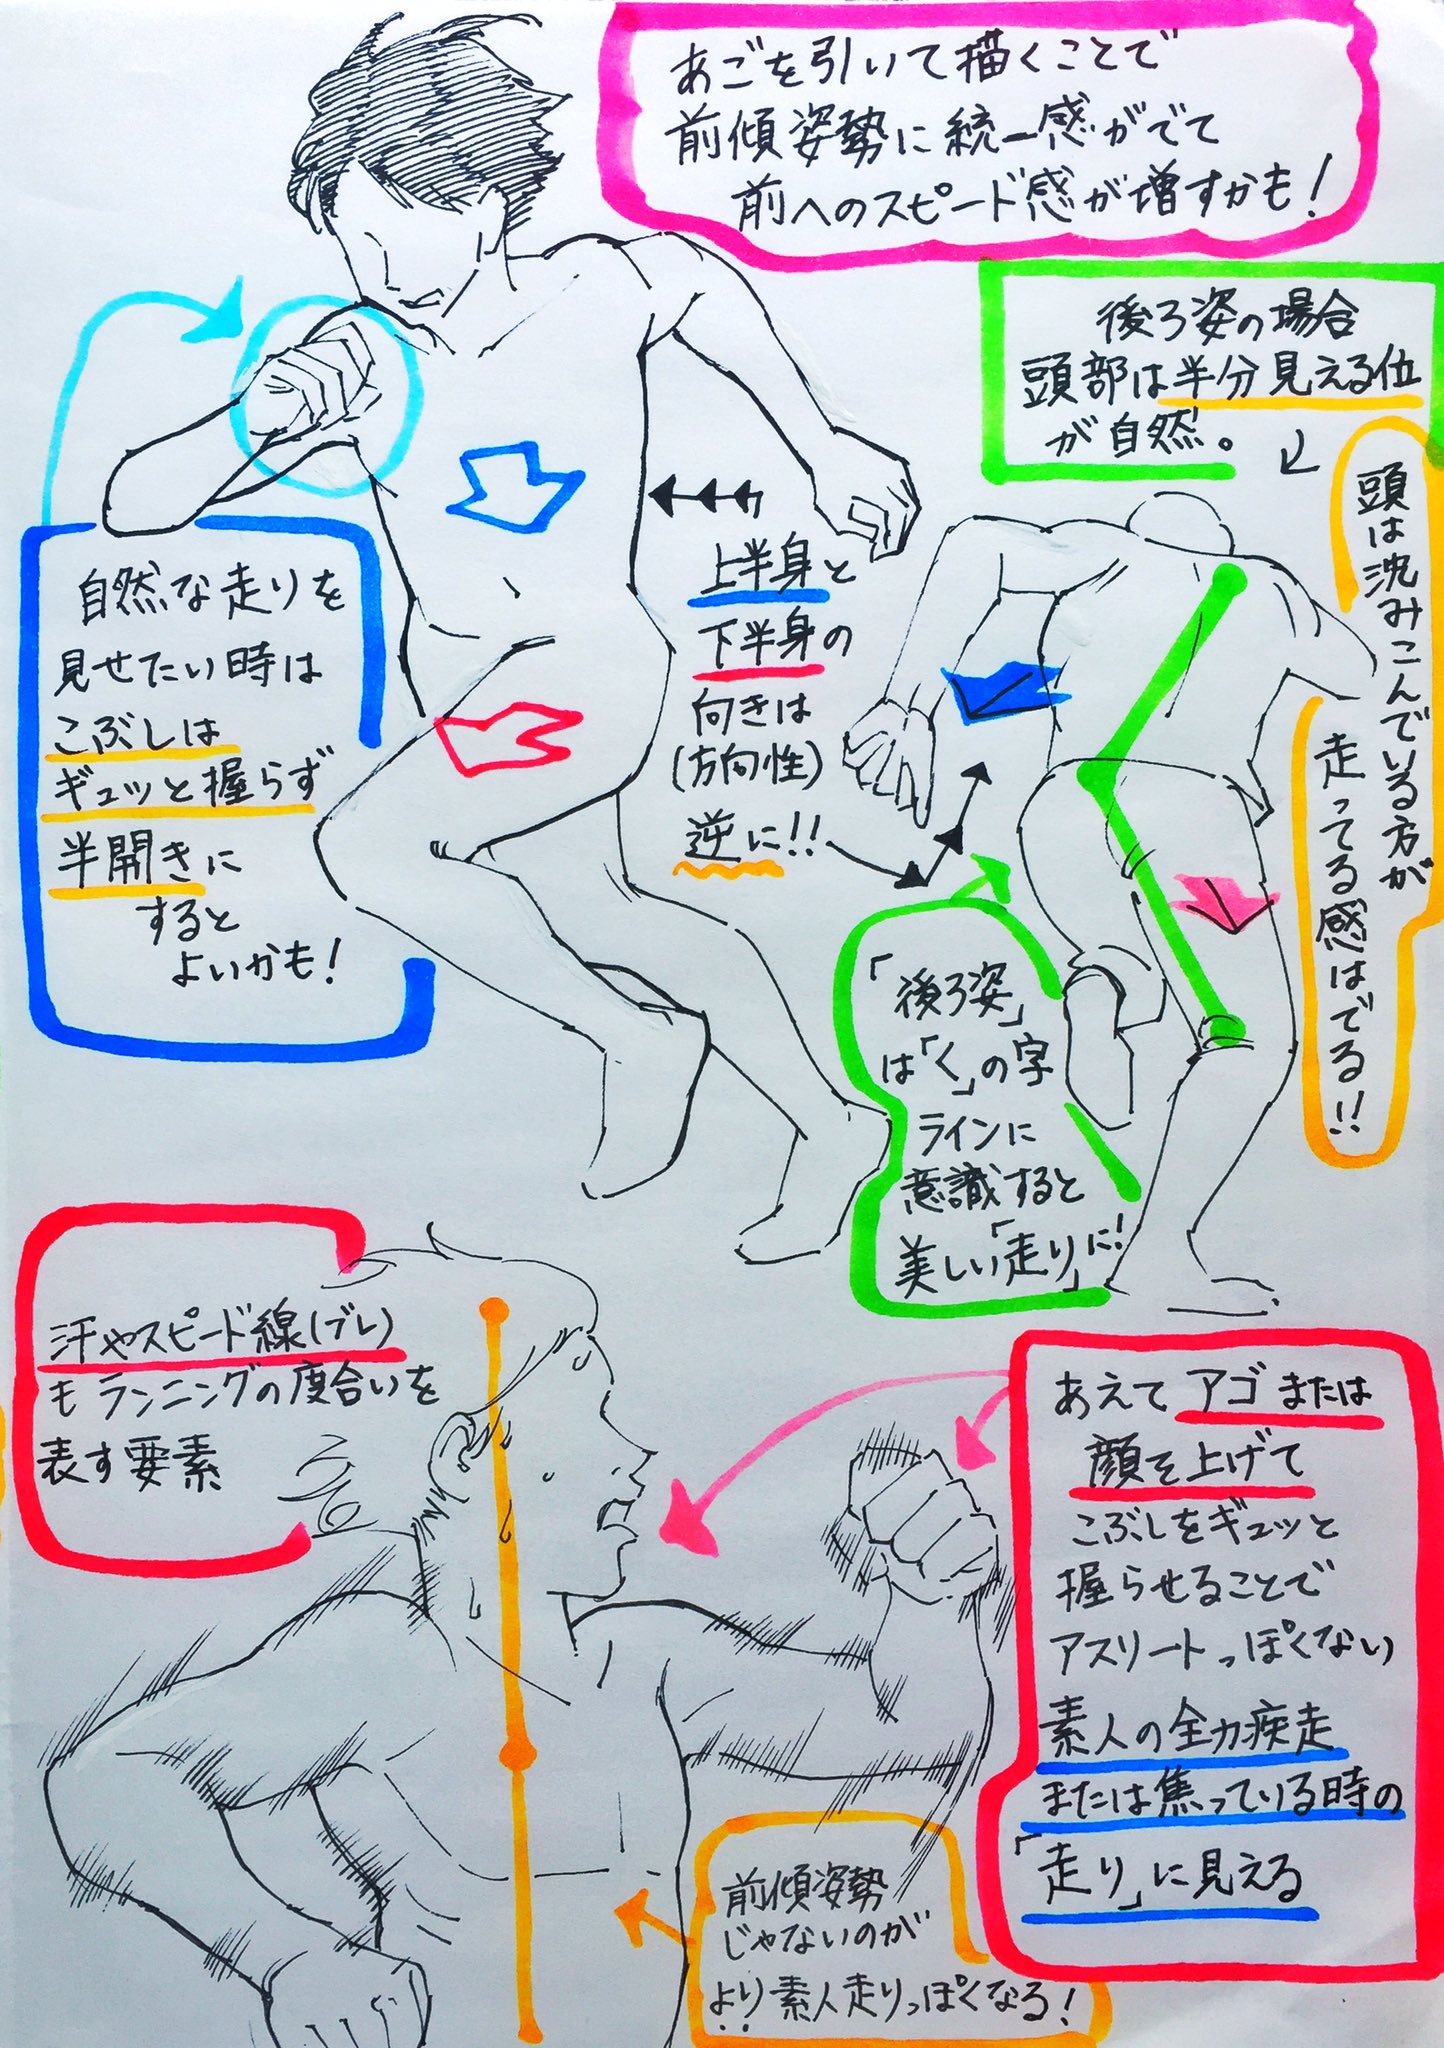 あごを引いて描くことで
前傾姿勢に統一感がでて
前へのスピード感が増すかも!
後ろ姿の場合
頭部は半分見える位
が自然。
頭は沈みこんでいる方が
走ってる感はでる!!
上半身と
下半身の
向きは
(方向性)
逆に!!
自然な走りを
見せたい時は
こぶしは
ギュッと握らず
半開きに
すると
よいかも!
「後ろ姿」
は「く」の字
ラインに
意識すると
美しい「走り」に!
汗やスピード線(ブレ)
もランニングの度合いを
表す要素
あえてアゴまたは
顔を上げて
こぶしをギュッと
握らせることで
アスリートっぽくない
素人の全力疾走
または焦っている時の
「走り」に見える
前傾姿勢
じゃないのが
より素人走りっぽくなる!
!!